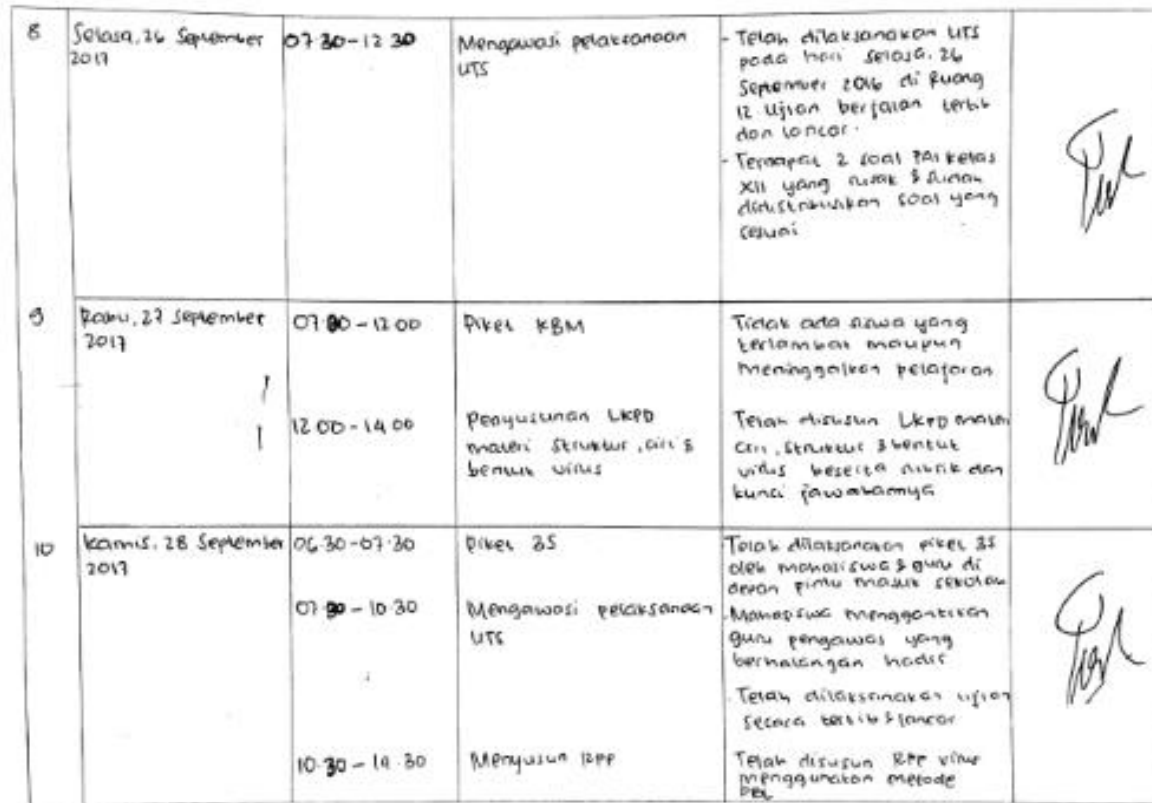 8
Selasa, 26 September
2017
07.30-12.30
Mengawasi pelaksanaan
UTS
- Telah dilaksanakan UTS
pada hari Selasa, 26
September 2016 di Ruang
12 Ujian berjalan tertib
dan lancar.
- Terdapat 2 soal PAI kelas
XII yang rusak & sudah
didistribusikan soal yang
sesuai
9
Rabu, 27 September
2017
07.30-12.00
Piket KBM
Tidak ada siswa yang
terlambat maupun
meninggalkan pelajaran
12.00-14.00
Penyusunan LKPD
materi struktur, ciri &
bentuk virus
Telah disusun LKPD materi
ciri, struktur & bentuk
virus beserta rubrik dan
kunci jawabannya
10
Kamis, 28 September
2017
06.30-07.30
Piket 3S
Telah dilaksanakan piket 3S
oleh mahasiswa & guru di
depan pintu masuk sekolah
07.30-10.30
Mengawasi pelaksanaan
UTS
- Mahasiswa menggantikan
guru pengawas yang
berhalangan hadir
- Telah dilaksanakan ujian
secara tertib & lancar
10.30-14.30
Menyusun RPP
Telah disusun RPP virus
menggunakan metode
PBL